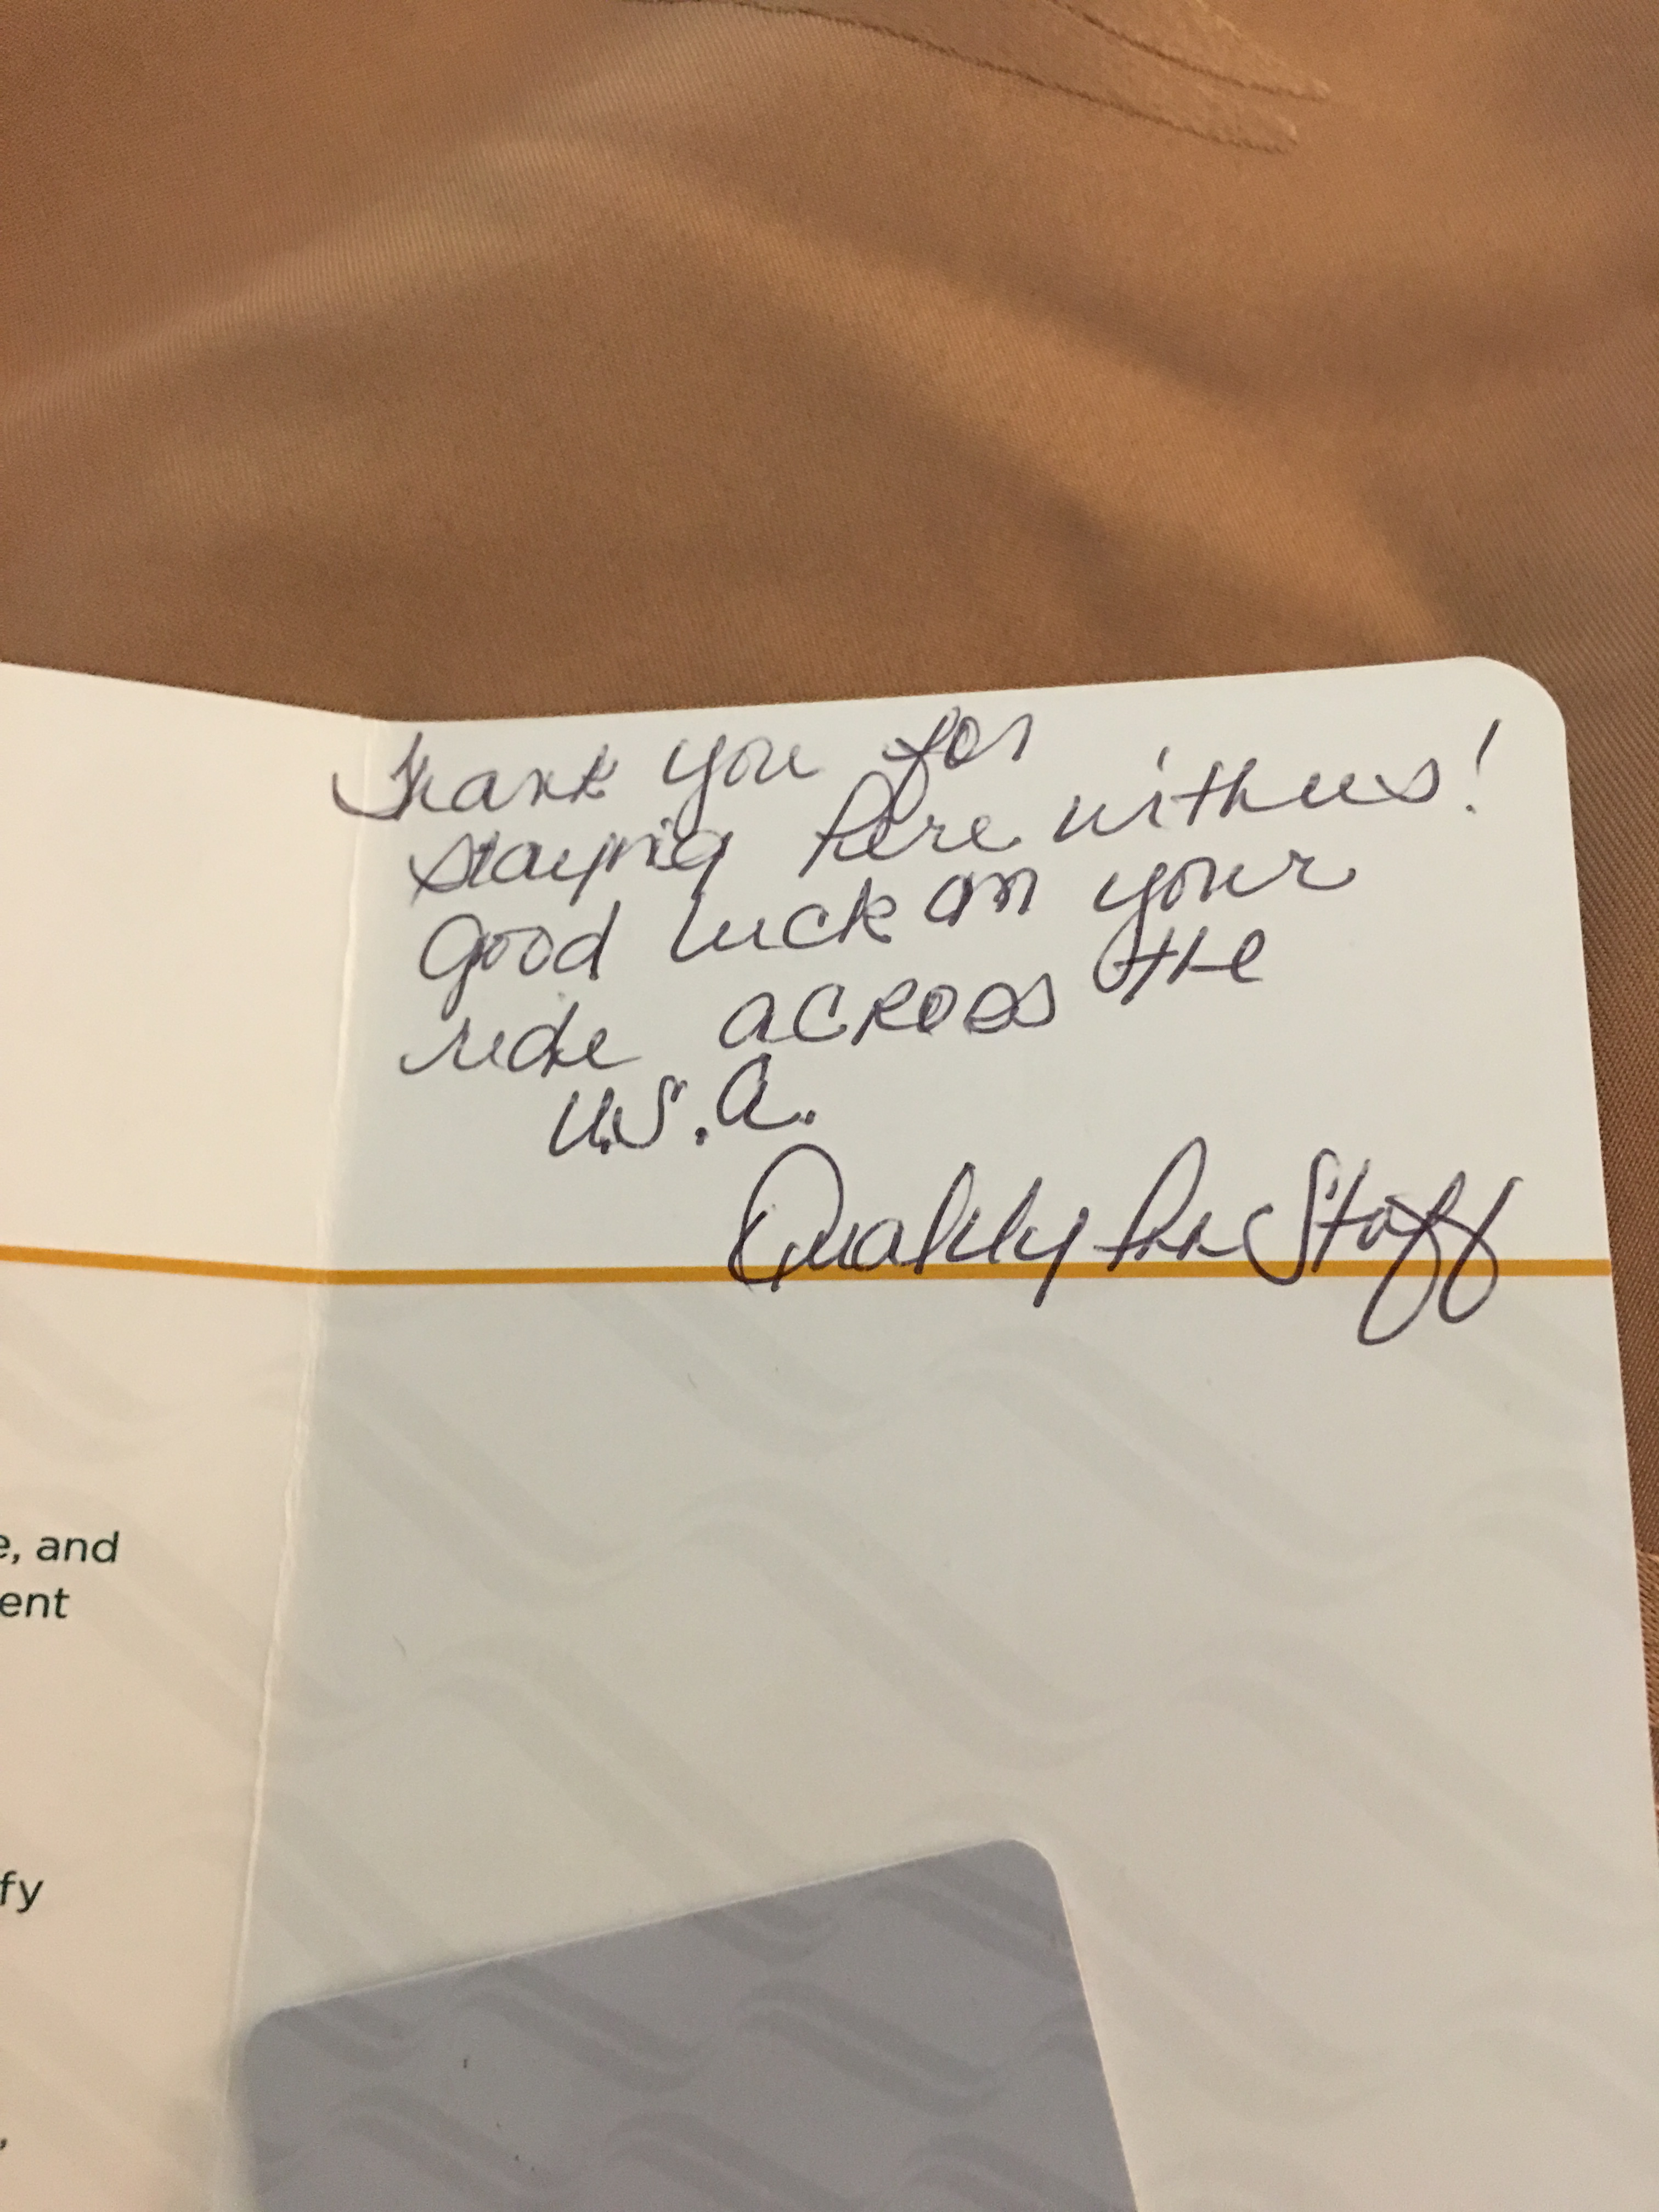 Thank you for
staying here with us!
Good luck on your
ride across the
U.S.A.
Quality Inn Staff
e, and
ent
fy
,